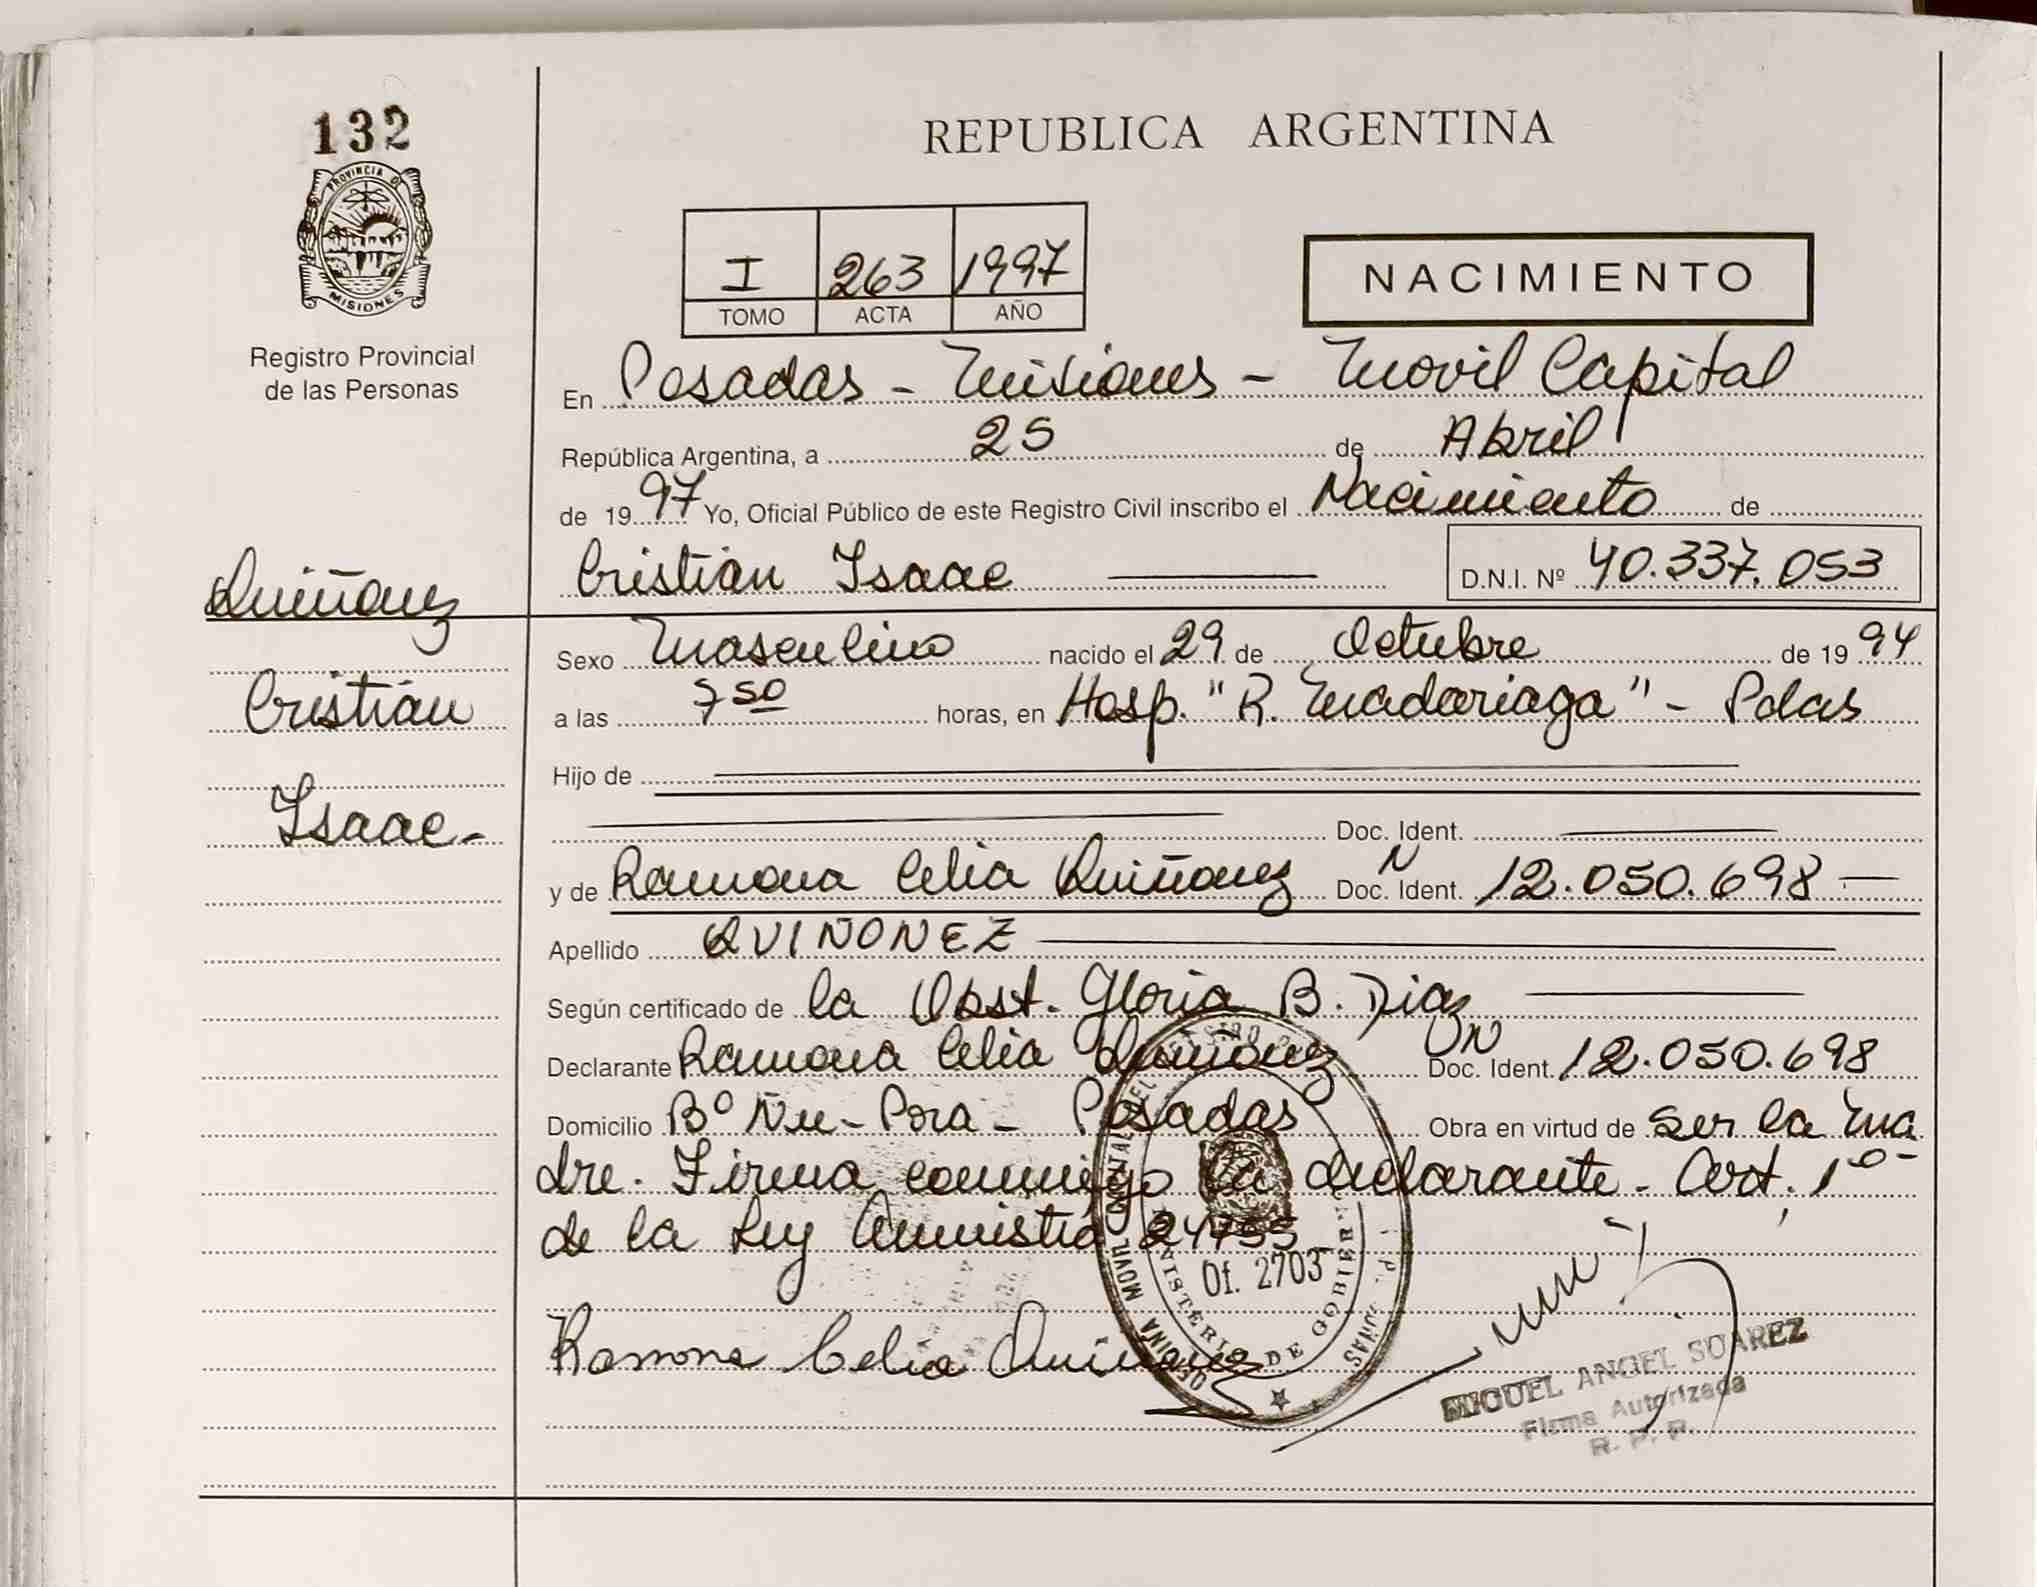 132
PROVINCIA DE
MISIONES
Registro Provincial
de las Personas
REPUBLICA ARGENTINA
I 263 1997
TOMO ACTA AÑO
NACIMIENTO
En Posadas - Misiones - Movil Capital
República Argentina, a 25 de Abril
de 1997 Yo, Oficial Público de este Registro Civil inscribo el Nacimiento de
Cristian Isaac D.N.I. Nº 40.337.053
Quiñonez
Cristian
Isaac-
Sexo Masculino nacido el 29 de Octubre de 1994
a las 7 50 horas, en Hosp. "R. Madariaga" - Pdas
Hijo de
Doc. Ident.
y de Ramona Celia Quiñonez Doc. N Ident. 12.050.698
Apellido QUIÑONEZ
Según certificado de la Obst. Gloria B. Diaz
Declarante Ramona Celia Quiñonez Doc. N Ident. 12.050.698
Domicilio Bº Ñu - Pora - Posadas Obra en virtud de ser la ma
dre. Firma conmigo la declarante - Art. 1º -
de la Ley Amnistia 24755
Of. 2703
OFICINA MOVIL CAPITAL DEL REGISTRO
MINISTERIO DE GOBIERNO
Ramona Celia Quiñonez
MIGUEL ANGEL SUAREZ
Firma Autorizada
R. P. P.